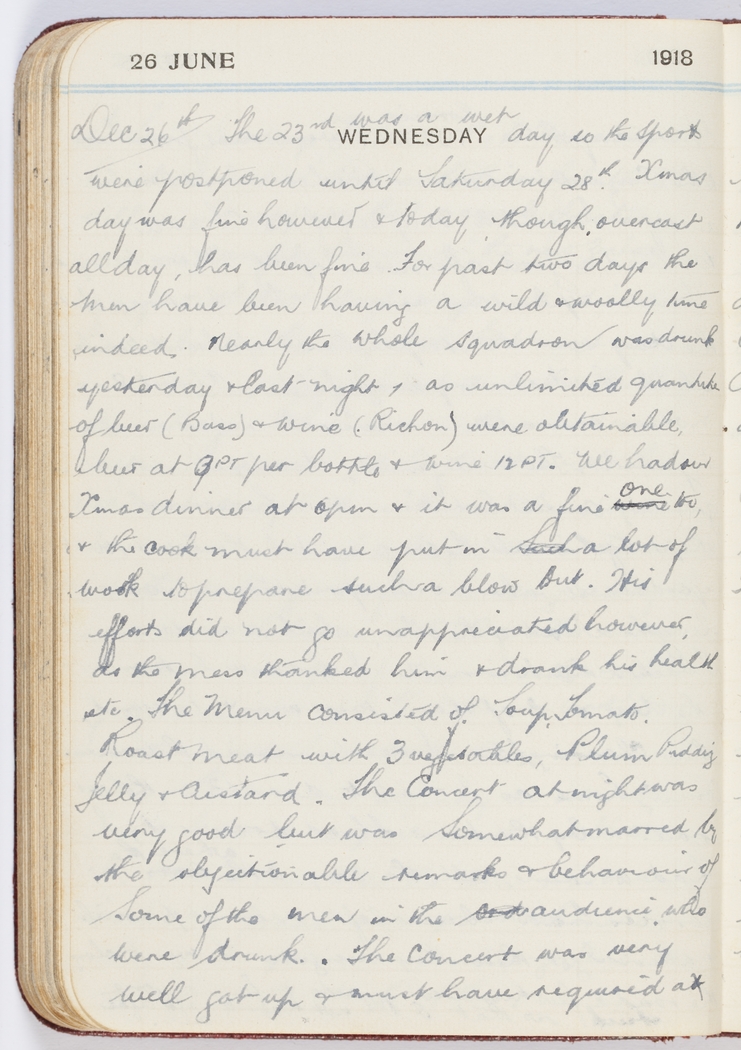 26 JUNE 1918
WEDNESDAY
Dec 26th The 23rd was a wet day so the sports
were postponed until Saturday 28th. Xmas
day was fine however & today, though overcast
all day, has been fine. For past two days the
men have been having a wild & woolly time
indeed. Nearly the whole squadron was drunk
yesterday & last night, as unlimited
of beer (Bass) & wine (Richon) were obtainable,
beer at PT per bottle & wine 12 PT. We had our
Xmas dinner at 6pm & it was a fine one too,
& the cook must have put in such a lot of
work to prepare such a blow out. His
efforts did not go unappreciated however,
as the mess thanked him & drank his health
etc. The Menu consisted of. Soup, Tomato.
Roast meat with 3 vegetables, Plum Pudding
Jelly & Custard. The Concert at night was
very good but was somewhat marred by
the objectionable remarks & behaviour of
some of the men in the audience who
were drunk. The Concert was very
well got up & must have required a